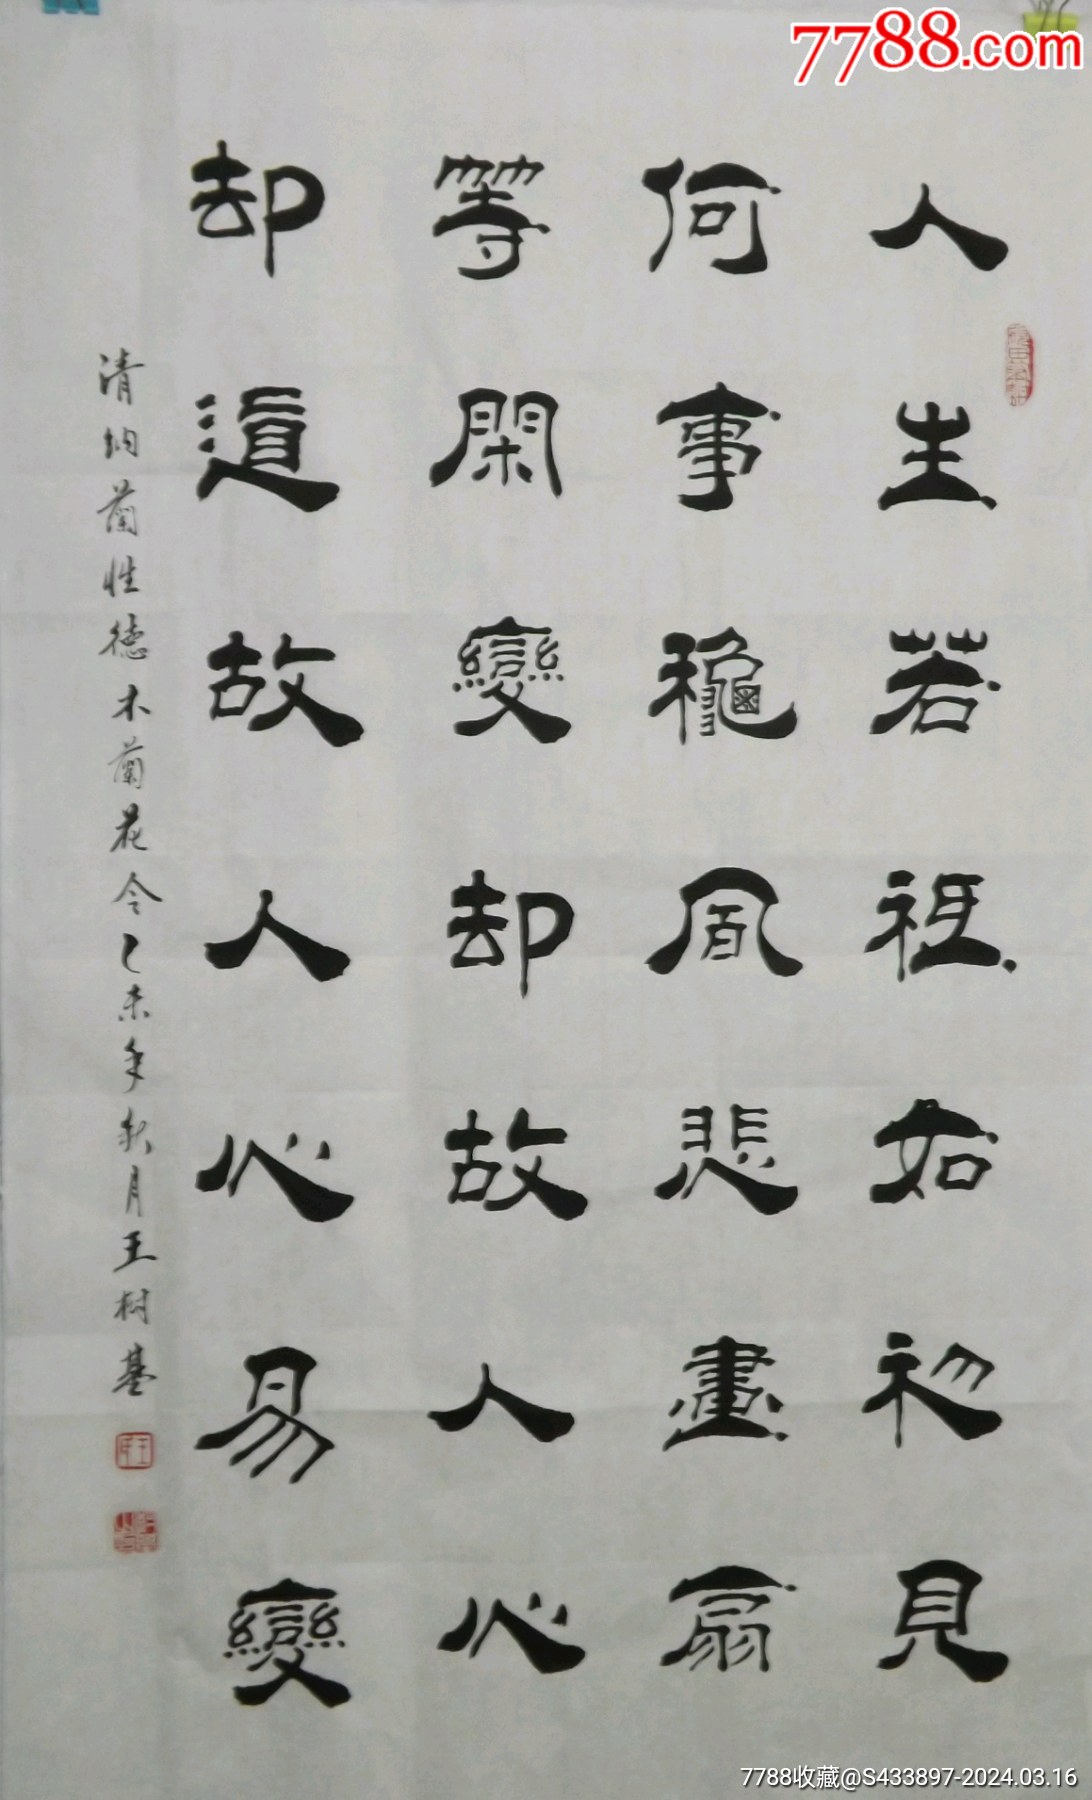 7788.com
人生若祗如初見
何事龝風悲畫扇
等閑變却故人心
却道故人心易變
清納蘭性德木蘭花令乙未年秋月王樹基
7788收藏@S433897-2024.03.16